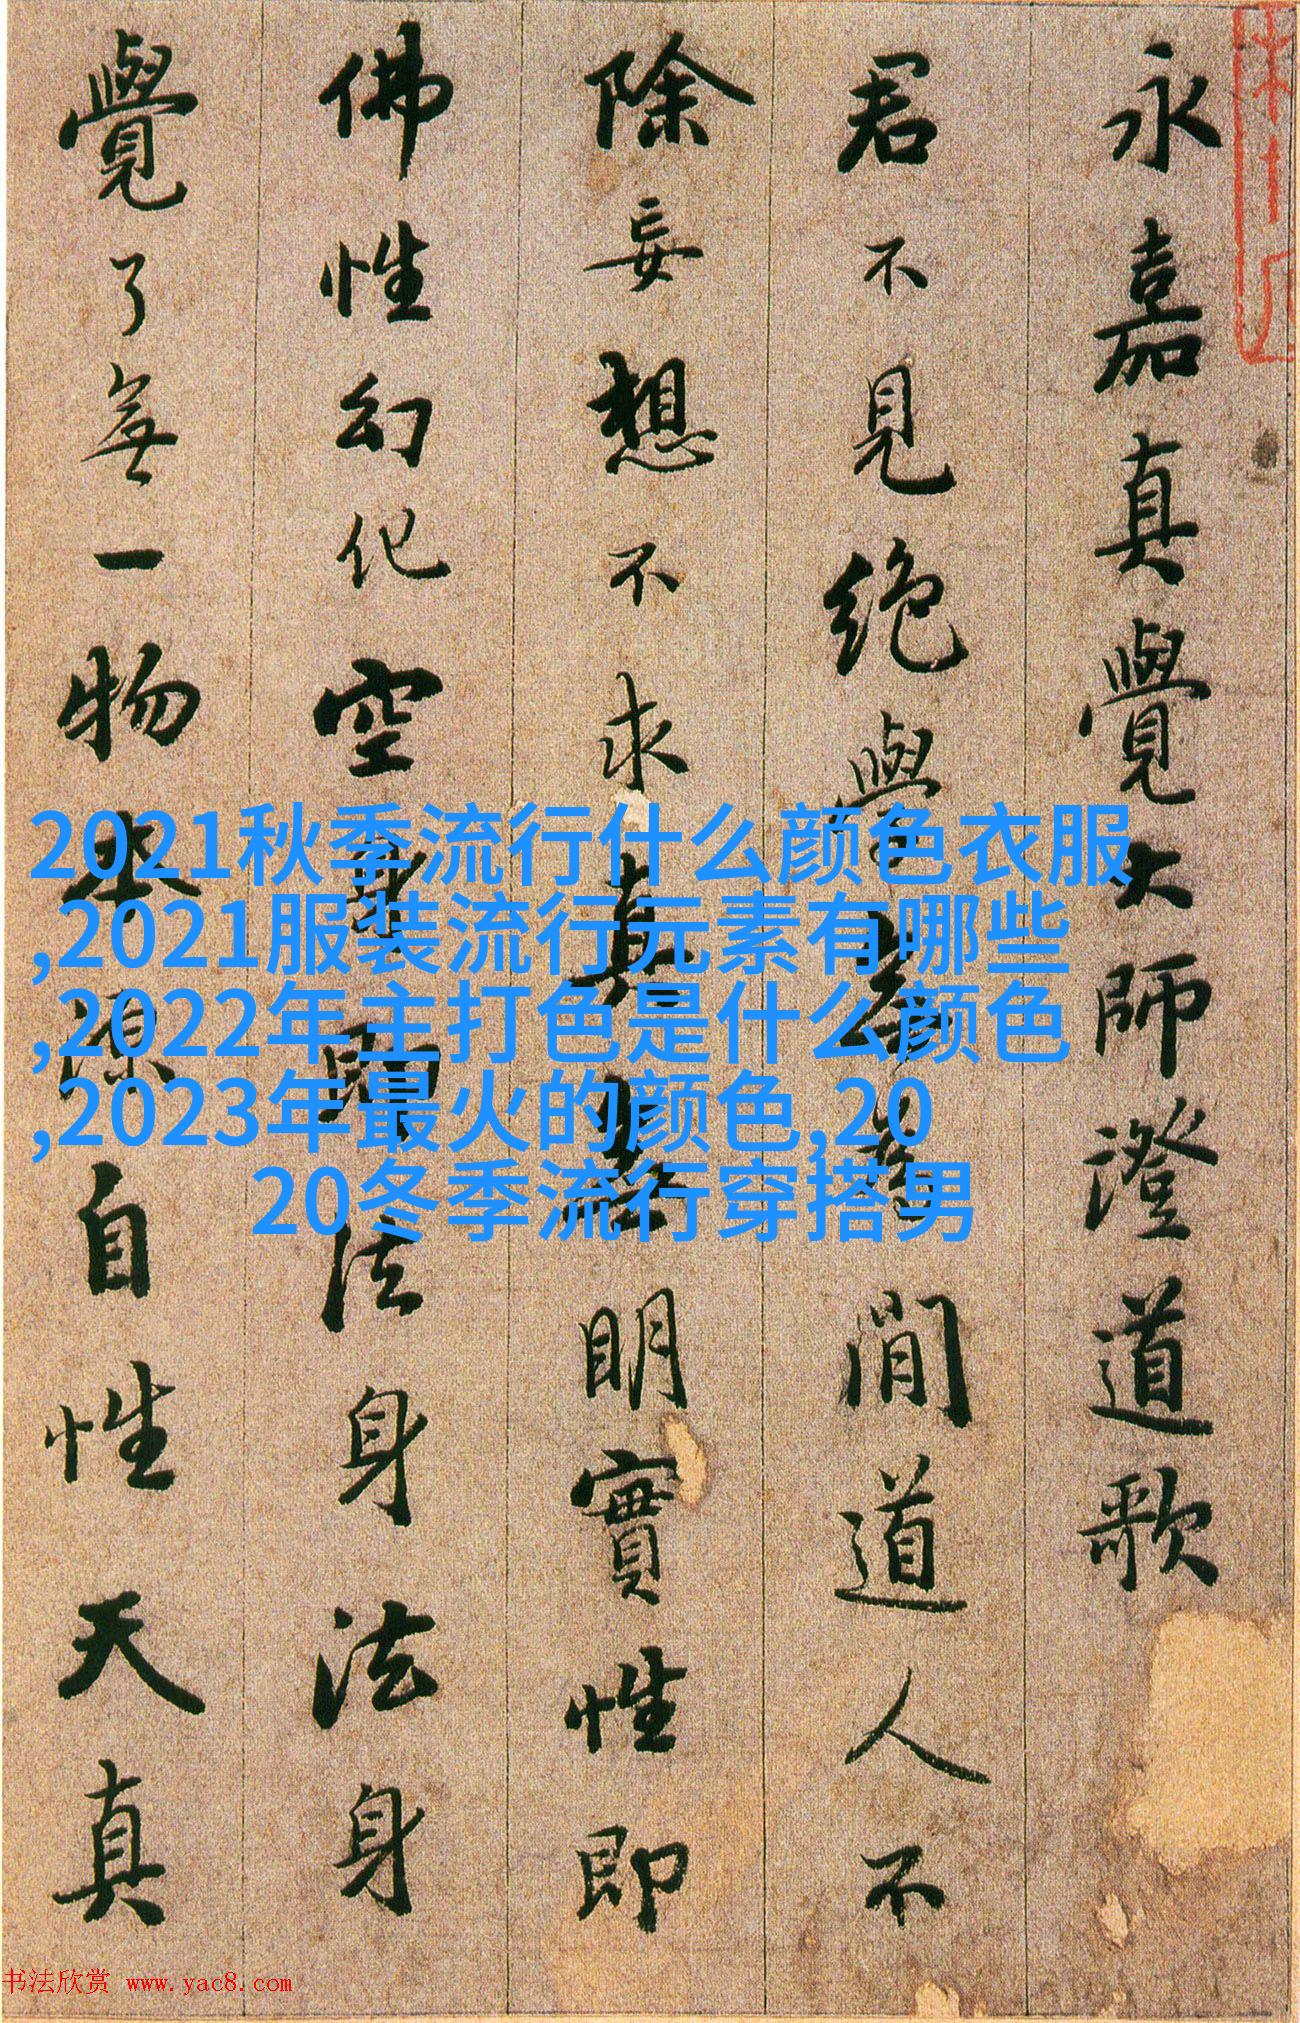 永嘉真覺大師澄道歌
君不見絕學無為閒道人不
除妄想不求真無明實性即
佛性幻化空身即法身法身
覺了無一物本源自性天真
2021秋季流行什么颜色衣服
,2021服装流行元素有哪些
,2022年主打色是什么颜色
,2023年最火的颜色,20
20冬季流行穿搭男
书法欣赏 www.yac8.com